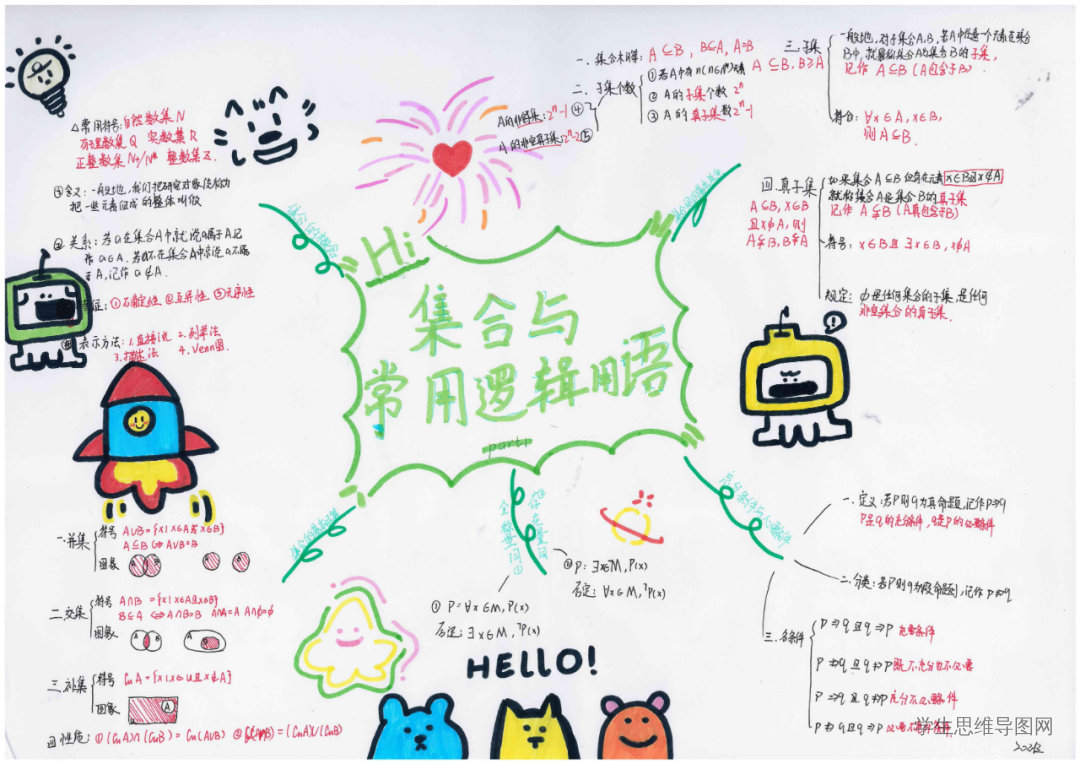 Hi
集合与
常用逻辑用语
part1
集合的概念
△常用符号:自然数集N
有理数集Q 实数集R
正整数集N+/N* 整数集Z.
①含义:一般地,我们把研究对象统称为
把一些元素组成的整体叫做
②关系:若a在集合A中就说a属于A,记
作a∈A.若a不在集合A中就说a不属
于A,记作a∉A.
征:①确定性 ②互异性 ③无序性
表示方法:1.直接法 2.列举法
3.描述法 4.Venn图.
一.集合相等:A⊆B,B⊆A,A=B
二.子集个数
①若A中有n(n∈N*)元素
② A的子集个数 2ⁿ
③ A的真子集数2ⁿ-1
A的非空子集:2ⁿ-1 ④
A的非空真子集:2ⁿ-2 ⑤
三.子集
一般地,对于集合A,B,若A中任意一个元素在集合
B中,就称集合A为集合B的子集,
记作 A⊆B(A包含于B).
A⊆B,B⊇A
符合:∀x∈A,x∈B,
则A⊆B.
四.真子集
如果集合A⊆B但存在元素x∈B且x∉A
就称集合A是集合B的真子集
记作 A⫋B(A真包含于B)
A⊆B,x∈B
且x∉A,则
A⫋B,B⫌A
符号:x∈B且∃x∈B,x∉A
规定:∅是任何集合的子集,是任何
非空集合的真子集.
一.并集
符号 A∪B={x|x∈A或x∈B}
A⊆B⇔A∪B=B
图象
二.交集
符号 A∩B={x|x∈A且x∈B}
B⊆A⇔A∩B=B A∩A=A A∩∅=∅
图象
三.补集
符号 CuA={x|x∈U且x∉A}
图象
四性质:①(CuA)∩(CuB)=Cu(A∪B) ②Cu(A∩B)=(CuA)∪(CuB)
全称量词①
存在量词②
① P=∀x∈M,P(x)
否定:∃x∈M,¬P(x)
② P:∃x∈M,P(x)
否定:∀x∈M,¬P(x)
充分条件与必要条件
一.定义:若P则q为真命题,记作P⇒q
P是q的充分条件,q是P的必要条件
二.分类:若P则q为假命题,记作P⇏q
三.各条件
P⇒q且q⇒P 充要条件
P⇏q且q⇏P 既不充分也不必要
P⇒q且q⇏P 充分不必要条件
P⇏q且q⇒P
HELLO!
学生思维导图网